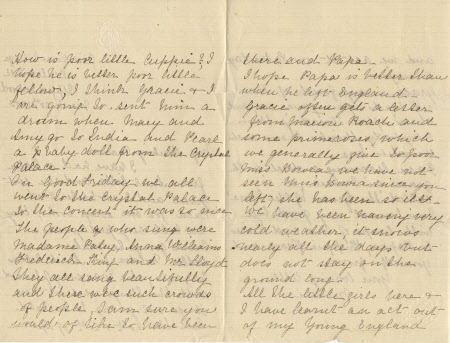 How is poor little Cuppie? I
hope he is better poor little
fellow, I think Gracie & I
are going to sent him a
drum when Mary and
Amy go to India and Pearl
a baby doll from the Crystal
Palace.
On Good Friday we all
went to the Crystal Palace
to the concert it was so nice
The people who sung were
Madame Patey, Anna Williams
Frederick King and Mr Lloyd
they all sang beautifully
and there were such crowds
of people, I am sure you
would of like to have been
there and Papa.
I hope Papa is better than
when he left England
Gracie often gets a letter
from Marion Roach and
some primroses, which
we generally give to poor
Miss we have not
seen Miss since you
left, she has been so ill.
We have been having very
cold weather, it snows
nearly all the days but
does not stay on the
ground long.
All the little girls here &
I have learnt an act out
of my Young England